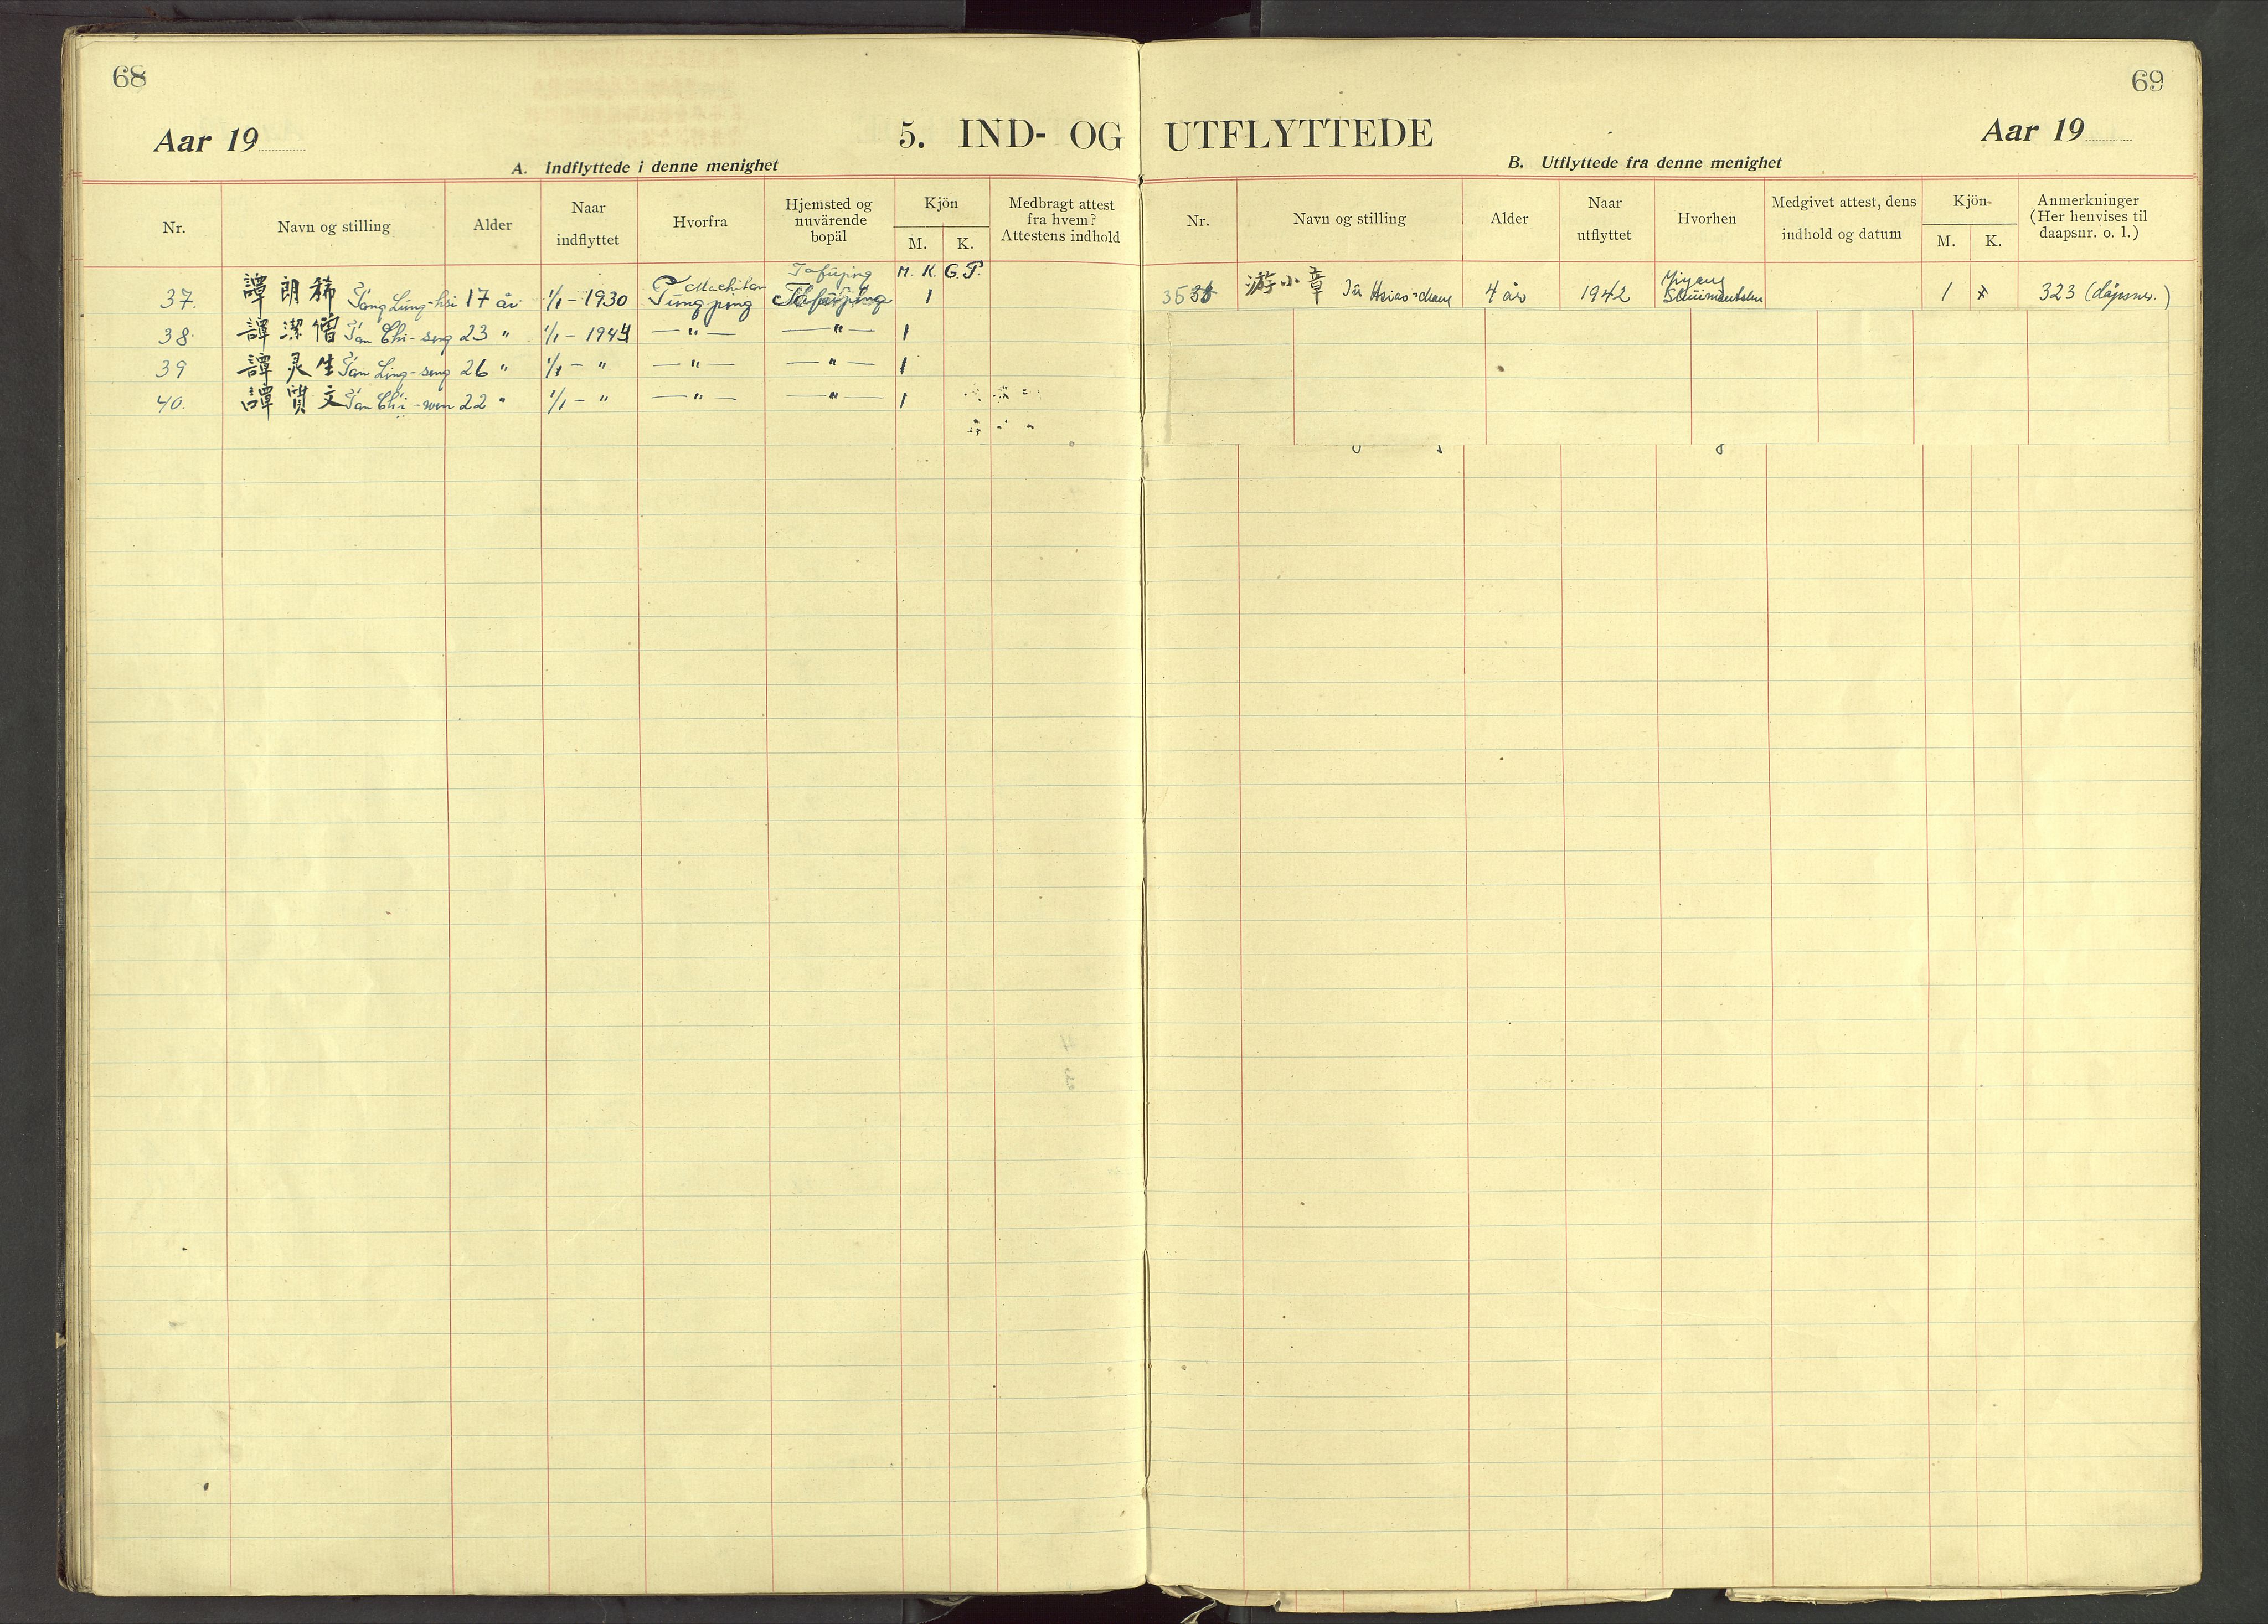 68
Aar 19
5. IND- OG
A. Indflyttede i denne menighet
Nr. Navn og stilling Alder Naar indflyttet Hvorfra Hjemsted og nuværende bopäl Kjön M. K. Medbragt attest fra hvem? Attestens indhold
Machitan Tafuping M. K. G. P.
37. 譚朗稀 17 år 1/1 - 1930 Tungping 1
38. 譚潔僧 Tan Chi-seng 23 " 1/1 - 1944 — " — — " — 1
39 譚灵生 Tan Ling-seng 26 " 1/1 - " — " — — " — 1
40. 譚質文 Tan Chi-wen 22 " 1/1 - " — " — — " — 1
69
UTFLYTTEDE
Aar 19
B. Utflyttede fra denne menighet
Nr. Navn og stilling Alder Naar utflyttet Hvorhen Medgivet attest, dens indhold og datum Kjön M. K. Anmerkninger (Her henvises til daapsnr. o. l.)
游小章 4 år 1942 1 323 (dåpsnr.)